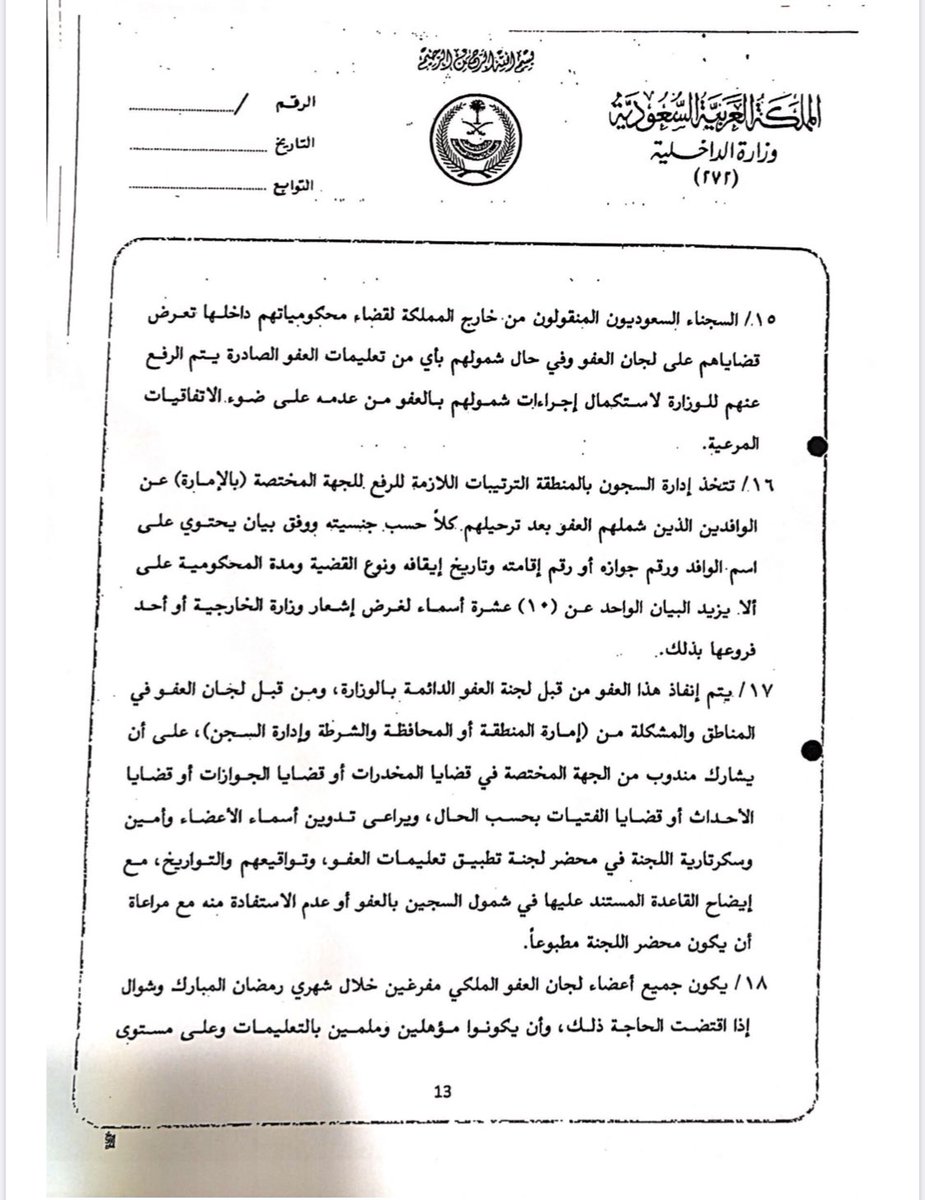 بسم الله الرحمن الرحيم
المملكة العربية السعودية
وزارة الداخلية
(٢٧٢)
الرقم /
التاريخ
التوابع
١٥/ السجناء السعوديون المنقولون من خارج المملكة لقضاء محكومياتهم داخلها تعرض
قضاياهم على لجان العفو وفي حال شمولهم بأي من تعليمات العفو الصادرة يتم الرفع
عنهم للوزارة لاستكمال إجراءات شمولهم بالعفو من عدمه على ضوء الاتفاقيات
المرعية.
١٦/ تتخذ إدارة السجون بالمنطقة الترتيبات اللازمة للرفع للجهة المختصة (بالإمارة) عن
الوافدين الذين شملهم العفو بعد ترحيلهم كلاً حسب جنسيته ووفق بيان يحتوي على
اسم الوافد ورقم جوازه أو رقم إقامته وتاريخ إيقافه ونوع القضية ومدة المحكومية على
ألا يزيد البيان الواحد عن (١٠) عشرة أسماء لغرض إشعار وزارة الخارجية أو أحد
فروعها بذلك.
١٧/ يتم إنفاذ هذا العفو من قبل لجنة العفو الدائمة بالوزارة، ومن قبل لجان العفو في
المناطق والمشكلة من (إمارة المنطقة أو المحافظة والشرطة وإدارة السجن)، على أن
يشارك مندوب من الجهة المختصة في قضايا المخدرات أو قضايا الجوازات أو قضايا
الأحداث أو قضايا الفتيات بحسب الحال، ويراعى تدوين أسماء الأعضاء وأمين
وسكرتارية اللجنة في محضر لجنة تطبيق تعليمات العفو، وتواقيعهم والتواريخ، مع
إيضاح القاعدة المستند عليها في شمول السجين بالعفو أو عدم الاستفادة منه مع مراعاة
أن يكون محضر اللجنة مطبوعاً.
١٨/ يكون جميع أعضاء لجان العفو الملكي مفرغين خلال شهري رمضان المبارك وشوال
إذا اقتضت الحاجة ذلك، وأن يكونوا مؤهلين وملمين بالتعليمات وعلى مستوى
13